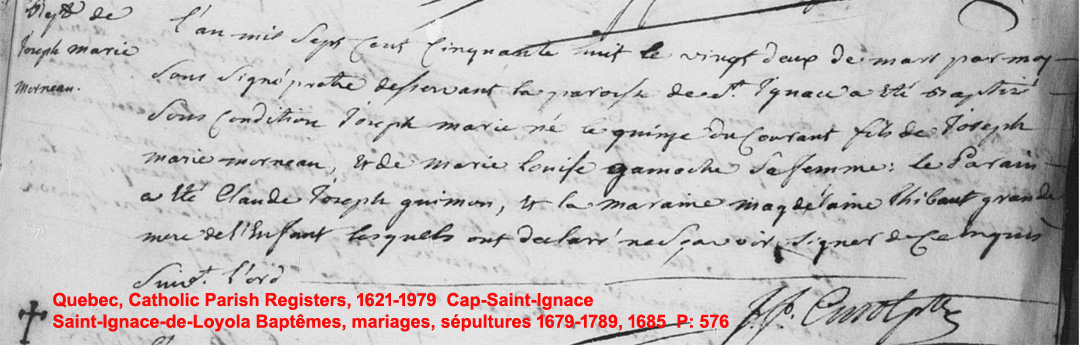 Bapt de
Joseph marie
morneau.
L'an mis Sept Cent Cinquante uit le vingt deux de mars par moy
Sous Signé pretre desservant la paroisse de St. Ignace a été Baptisé
Sous Condition Joseph marie né le quinze du Courant fils de Joseph
marie morneau, et de marie louise gamache Sa femme: le Parain
a été Claude Joseph guimon, et la maraine magdelaine Thibaut grande
mere de l'Enfant lesquels ont declaré ne sçavoir Signer de Ce inquis
Suivt. l'ord
Quebec, Catholic Parish Registers, 1621-1979 Cap-Saint-Ignace
Saint-Ignace-de-Loyola Baptêmes, mariages, sépultures 1679-1789, 1685 P: 576